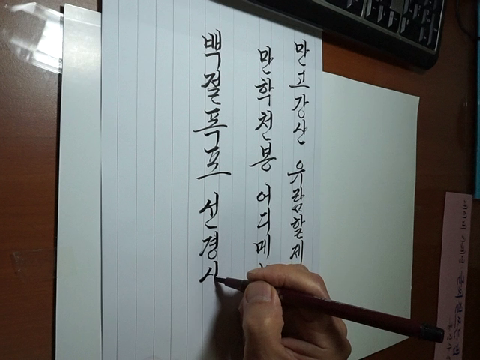 만고강산 유람할제
만학천봉 어디메
백절폭포 선경시